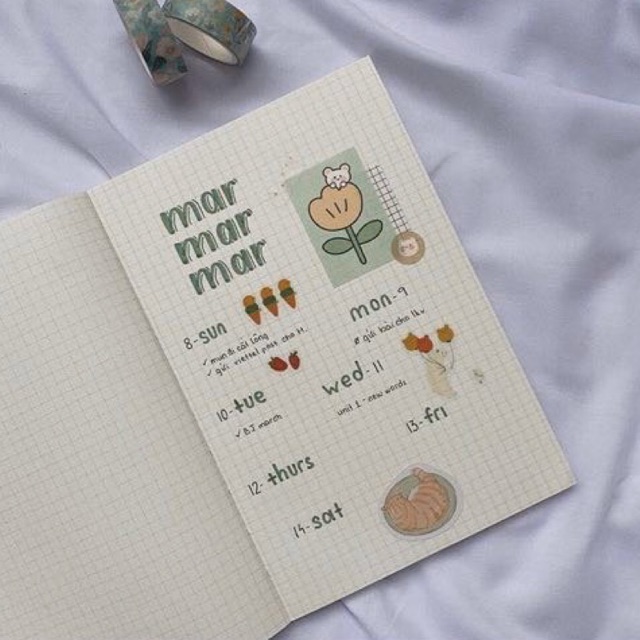 mar
mar
mar
8-sun
✓ mua & cắt lông
✓ gửi viettel post cho H.
mon-9
gửi bài cho
10-tue
✓ BJ march
wed-11
unit 1 - new words
12-thurs
13-fri
14-sat